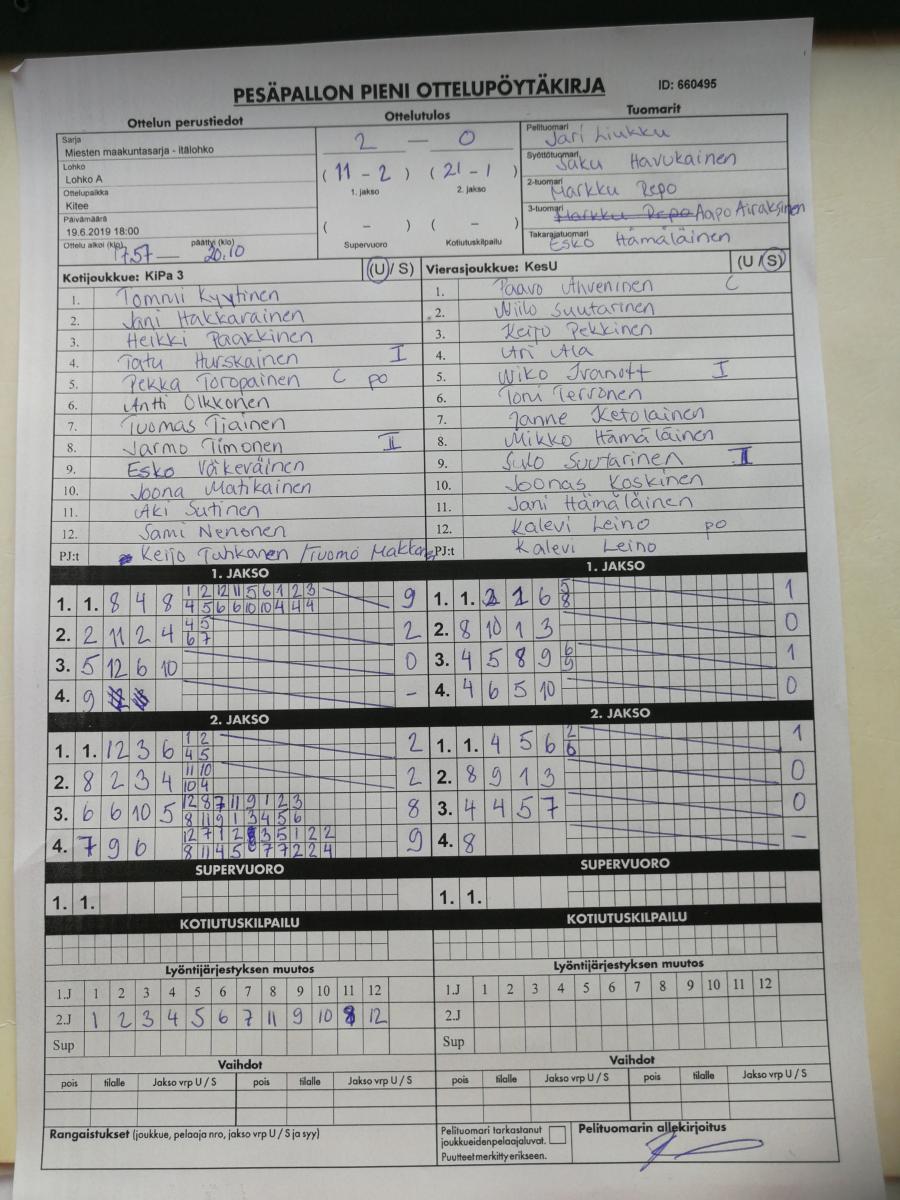 PESÄPALLON PIENI OTTELUPÖYTÄKIRJA ID: 660495
Ottelun perustiedot
Sarja
Miesten maakuntasarja - Itälohko
Lohko
Lohko A
Ottelupaikka
Kitee
Päivämäärä
19.6.2019 18:00
Ottelu alkoi (klo) päättyi (klo)
17.57 — 20.10
Ottelutulos
2 — 0
( 11 - 2 ) ( 21 - 1 )
1. jakso 2. jakso
( - ) ( - )
Supervuoro Kotiutuskilpailu
Tuomarit
Pelituomari Jari Liukku
Syöttötuomari Saku Havukainen
2-tuomari Markku Repo
3-tuomari Markku Repo Aapo Airaksinen
Takarajatuomari Esko Hämäläinen
Kotijoukkue: KiPa 3 (U / S)
1. Tommi Kyytinen
2. Jani Hakkarainen
3. Heikki Paakkinen
4. Tatu Hurskainen I
5. Pekka Toropainen C po
6. Antti Olkkonen
7. Tuomas Tiainen
8. Jarmo Timonen II
9. Esko Väkeväinen
10. Joona Matikainen
11. Aki Sutinen
12. Sami Nenonen
PJ:t Keijo Tuhkanen / Tuomo Makkonen
Vierasjoukkue: KesU (U / S)
1. Paavo Ahveninen C
2. Niilo Suutarinen
3. Keijo Pekkinen
4. Ari Ala
5. Niko Ivanoff I
6. Toni Terronen
7. Janne Ketolainen
8. Mikko Hämäläinen
9. Sulo Suutarinen II
10. Joonas Koskinen
11. Jani Hämäläinen
12. Kalevi Leino po
PJ:t Kalevi Leino
1. JAKSO
1. 1. 8 4 8 1 2 12 11 5 6 1 2 3 9
4 5 6 6 10 10 4 4 4
2. 2 11 2 4 4 5 2
6 7
3. 5 12 6 10 0
4. 9 -
1. JAKSO
1. 1. 2 1 6 5 1
8
2. 8 10 1 3 0
3. 4 5 8 9 6 1
9
4. 4 6 5 10 0
2. JAKSO
1. 1. 12 3 6 1 2 2
4 5
2. 8 2 3 4 11 10 2
10 4
3. 6 6 10 5 12 8 7 11 9 1 2 3 8
8 11 9 1 3 4 5 6
4. 7 9 6 12 7 1 2 3 5 1 2 2 9
8 11 4 5 7 7 2 2 4
2. JAKSO
1. 1. 4 5 6 2 1
6
2. 8 9 1 3 0
3. 4 4 5 7 0
4. 8 -
SUPERVUORO
1. 1.
SUPERVUORO
1. 1.
KOTIUTUSKILPAILU
KOTIUTUSKILPAILU
Lyöntijärjestyksen muutos
1.J 1 2 3 4 5 6 7 8 9 10 11 12
2.J 1 2 3 4 5 6 7 11 9 10 8 12
Sup
Lyöntijärjestyksen muutos
1.J 1 2 3 4 5 6 7 8 9 10 11 12
2.J
Sup
Vaihdot
pois tilalle Jakso vrp U / S pois tilalle Jakso vrp U / S
Vaihdot
pois tilalle Jakso vrp U / S pois tilalle Jakso vrp U / S
Rangaistukset (joukkue, pelaaja nro, jakso vrp U / S ja syy)
Pelituomari tarkastanut
joukkueiden pelaajaluvat.
Puutteet merkitty erikseen.
Pelituomarin allekirjoitus